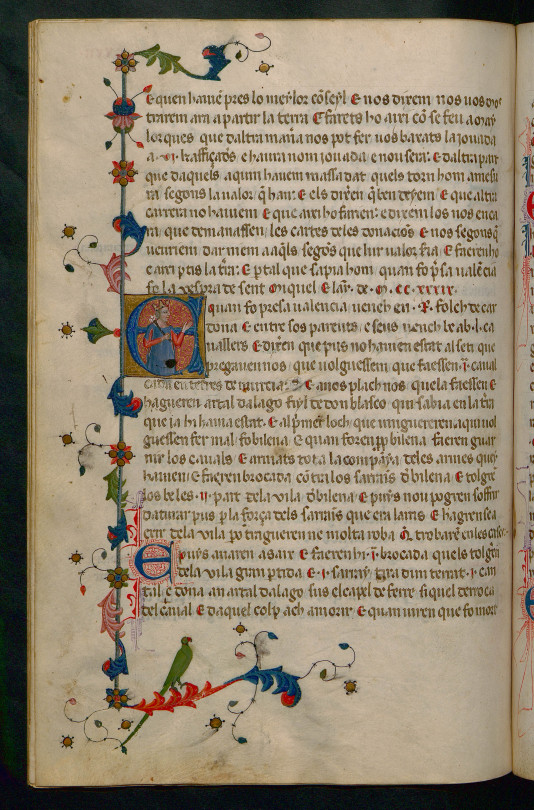 E quen hauiẽ pres lo meylor cõseyl E nos dixem nos uos
trairem ara a partir la terra E farets ho axi cõ se feu a
lorques que daltra maña nos pot fer uos baxats la jouada
a .VI. kaffiçades e haura nom jouada e nou sera: E daltra part
que daquels aquin hauem massa dat quels torn hom a
ra segons la ualor q̃ han: E els dixeren q̃ ben deyem E que altra
carrera no hauiem E que axi ho fariem: e dixem los nos enca
ra que demanassen les cartes les donacions E nos segons q̃
ueuriem dariem a aq̃ls segõs que lur ualor E faeren ho
e axi ptis la tr̃a: E p tal que sapia hom quan fo p̃sa ualẽcia
fo la uespra de sent Miquel E lañ de M. CC. XXXIX.
E quan fo presa ualencia uench en .R. folch de car
dona E entre sos parents e seus uench be ab .L. ca
uallers E dixeren que pus no hauien estat al seti que
pregauen nos que uolguessem que faessen .I. caual
cada en terres de murcia: E a nos plach nos que la faessen E
hagueren artal dalago fiyl de don blasco qui sabia en la tr̃a
que ja hi hauia estat. E al p̃mer loch que uingueren aqui uol
guessen fer mal fo bilena E quan foren pp bilena faeren guar
nir los cauals E armats tota la companya de les armes que y
hauien E faeren brocada contra los sarrains de bilena E tolgre
los be les .II. parts de la vila de bilena E puys nou pogren soffrir
da turar pus p la força dels sarrains que era la
exir de la vila po tragueren ne molta roba q̃ trobarẽ en les cases.
E puys anaren a sax E faeren hi .I. brocada quels tolgren
de la vila gran ptida E .I. sarray tira dun terrat .I. can
tal e dona an artal dalago sus el capel de ferre si quel derroca
del caual E daquel colp ach a morir E quan uiren que fo mort